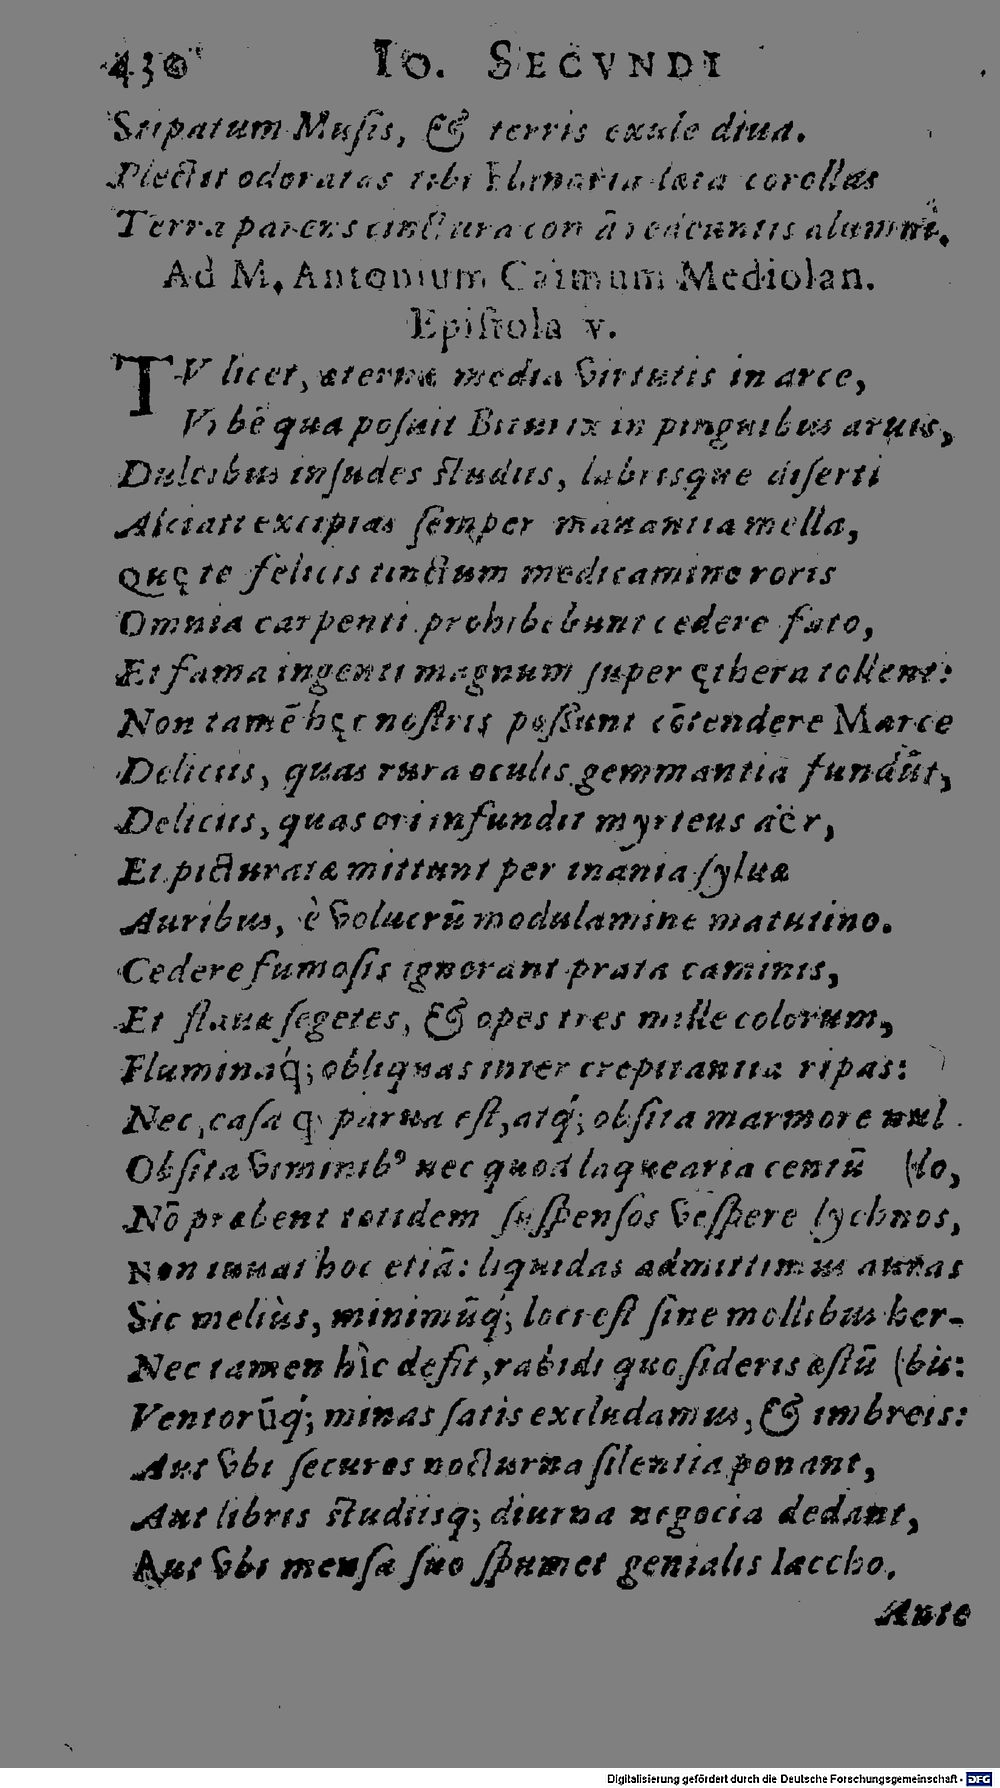 430 IO. SECVNDI
Stipatum Musis, & terris exule diua.
Plectit odoratas tibi læta corollas
Terra parens cinctura comā redeuntis alumni.
Ad M. Antonium Caimum Mediolan.
Epiſtola v.
TV licet, æternæ media virtutis in arce,
Vrbē qua poſuit in pinguibus aruis,
Dulcibus inſudes ſtudiis, labriſque diſerti
Alciati excipias ſemper manantia mella,
Quę te felicis tinctum medicamine roris
Omnia carpenti prohibebunt cedere fato,
Et fama ingenti magnum ſuper ęthera tollent:
Non tamē hęc noſtris poſſunt cōtendere Marce
Deliciis, quas rura oculis gemmantia fundūt,
Deliciis, quas ori infundit myrteus aër,
Et picturatæ mittunt per inania ſyluæ
Auribus, è volucrū modulamine matutino.
Cedere fumoſis ignorant prata caminis,
Et flauæ ſegetes, & opes tres mille colorum,
Fluminaq́; obliquas inter crepitantia ripas:
Nec, caſa q parua eſt, atq́; obſita marmore nul
Obſita viminibꝰ nec quod laquearia centū (lo,
Nō præbent totidem ſuſpenſos veſpere lychnos,
Non iuuat hoc etiā: liquidas admittimus auras
Sic meliùs, minimūq́; loci eſt ſine mollibus her-
Nec tamen hîc deſit, rabidi quo ſideris æſtū (bis:
Ventorūq́; minas ſatis excludamus, & imbreis:
Aut vbi ſecuros nocturna ſilentia ponant,
Aut libris ſtudiisq; diurna negocia dedant,
Aut vbi menſa ſuo ſpumet genialis Iaccho.
Ante
Digitalisierung gefördert durch die Deutsche Forschungsgemeinschaft - DFG